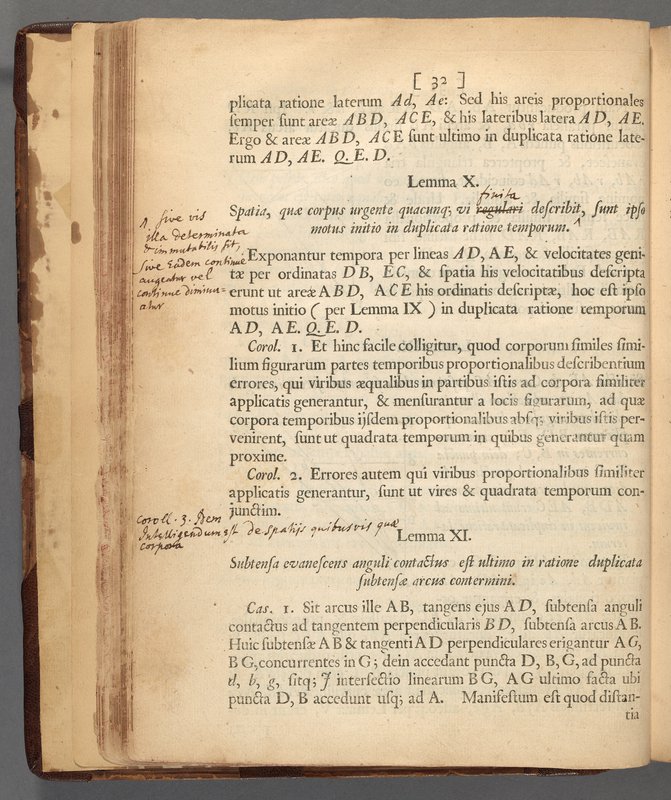 [ 32 ]
plicata ratione laterum Ad, Ae: Sed his areis proportionales
semper sunt areæ ABD, ACE, & his lateribus latera AD, AE.
Ergo & areæ ABD, ACE sunt ultimo in duplicata ratione late-
rum AD, AE. Q. E. D.
Lemma X.
finita
Spatia, quæ corpus urgente quacunq; vi regulari describit, sunt ipso
motus initio in duplicata ratione temporum. ^
^. sive vis
illa determinata
& immutabilis sit,
sive eadem continue
augeatur vel
continue diminu-
atur
Exponantur tempora per lineas AD, AE, & velocitates geni-
tæ per ordinatas DB, EC, & spatia his velocitatibus descripta
erunt ut areæ ABD, ACE his ordinatis descriptæ, hoc est ipso
motus initio ( per Lemma IX ) in duplicata ratione temporum
AD, AE. Q. E. D.
Corol. 1. Et hinc facile colligitur, quod corporum similes simi-
lium figurarum partes temporibus proportionalibus describentium
errores, qui viribus æqualibus in partibus istis ad corpora similiter
applicatis generantur, & mensurantur a locis figurarum, ad quæ
corpora temporibus ijsdem proportionalibus absq; viribus istis per-
venirent, sunt ut quadrata temporum in quibus generantur quam
proxime.
Corol. 2. Errores autem qui viribus proportionalibus similiter
applicatis generantur, sunt ut vires & quadrata temporum con-
junctim.
Coroll. 3. Idem
Intelligendum est de spatijs quibusvis quæ
corpora
Lemma XI.
Subtensa evanescens anguli contactus est ultimo in ratione duplicata
subtensæ arcus contermini.
Cas. 1. Sit arcus ille AB, tangens ejus AD, subtensa anguli
contactus ad tangentem perpendicularis BD, subtensa arcus AB.
Huic subtensæ AB & tangenti AD perpendiculares erigantur AG,
BG, concurrentes in G; dein accedant puncta D, B, G, ad puncta
d, b, g, sitq; J intersectio linearum BG, AG ultimo facta ubi
puncta D, B accedunt usq; ad A. Manifestum est quod distan-
tia